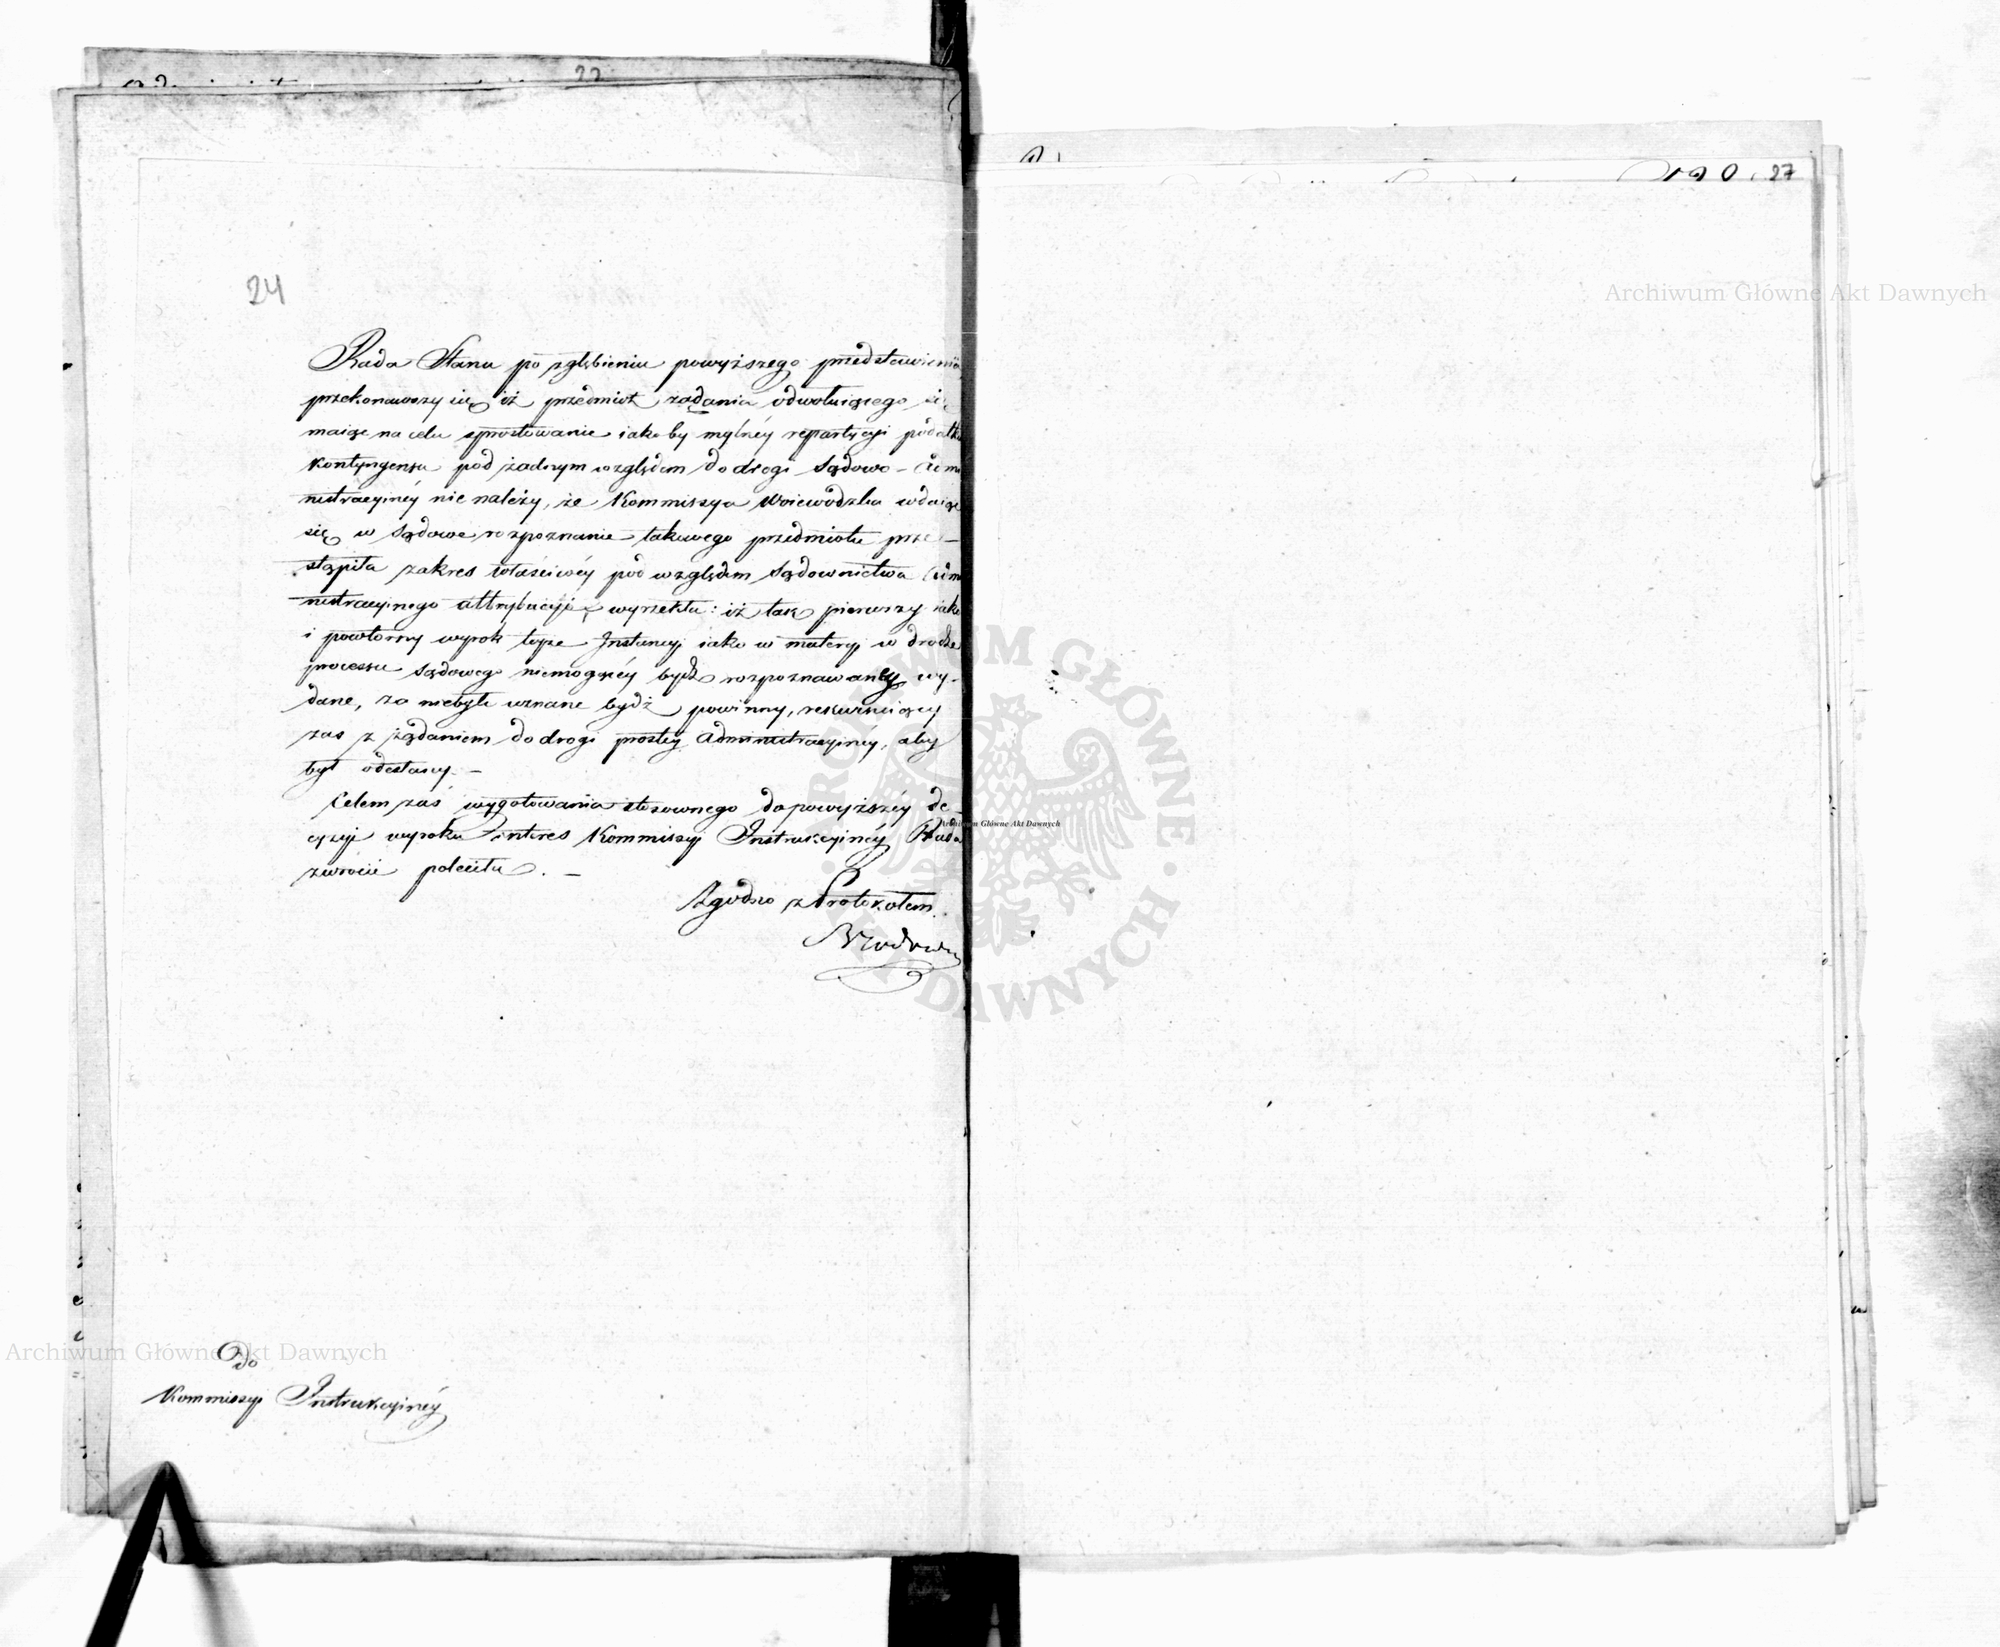 22
27
24
Rada Stanu po zgłębieniu powyższego przedstawienia
przekonawszy się iż przedmiot żądania odwołuiącego się
maiąc na celu sprostowanie iakoby mylnéy repartycyi podatku
kontyngensu pod żadnym względem do drogi Sądowo - Admi
nistracyinéy nie należy, że Kommissya Woiewódzka wdaiąc
się w Sądowe rozpoznanie takowego przedmiotu prze-
stąpiła zakres właściwéy pod względem Sądownictwa Admi
nistracyinego attrybucyi wyrzekła: iż tak pierwszy iako
i powtorny wyrok teyże Instancyi iako w materyi w drodze
processu Sądowego niemogącéy bydź rozpoznawanéy wy-
dane, za niebyłe uznane bydź powinny, rekuruiący
zas z żądaniem do drogi prostéy Administracyinéy, aby
był odesłany. -
Celem zaś wygotowania stosownego do powyższéy de-
cyzyi wyroku interes Kommissyi Instrukcyinéy Rada
zwrócić poleciła. -
Zgodno z Protokołem.
do
Kommissyi Instrukcyinéy
Archiwum Główne Akt Dawnych
Archiwum Główne Akt Dawnych
Archiwum Główne Akt Dawnych
ARCHIWUM GŁÓWNE AKT DAWNYCH